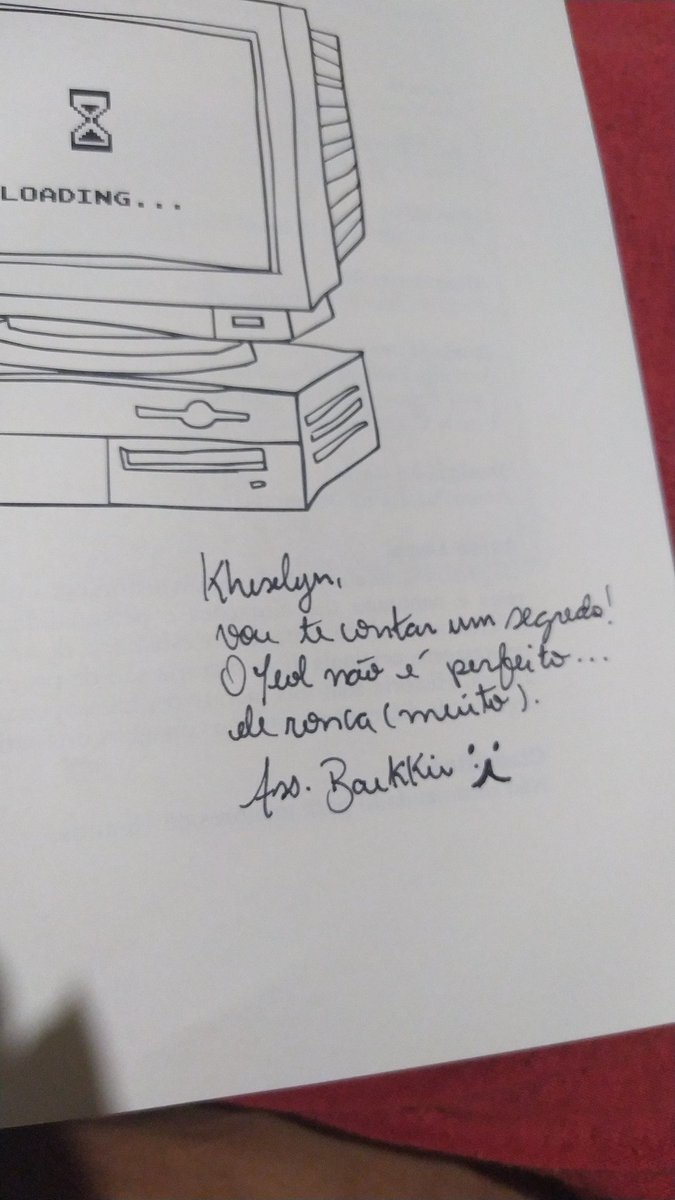 LOADING...
Kheselyn,
vou te contar um segredo!
O Yeol não é perfeito...
ele ronca (muito).
Ass. Baekkie